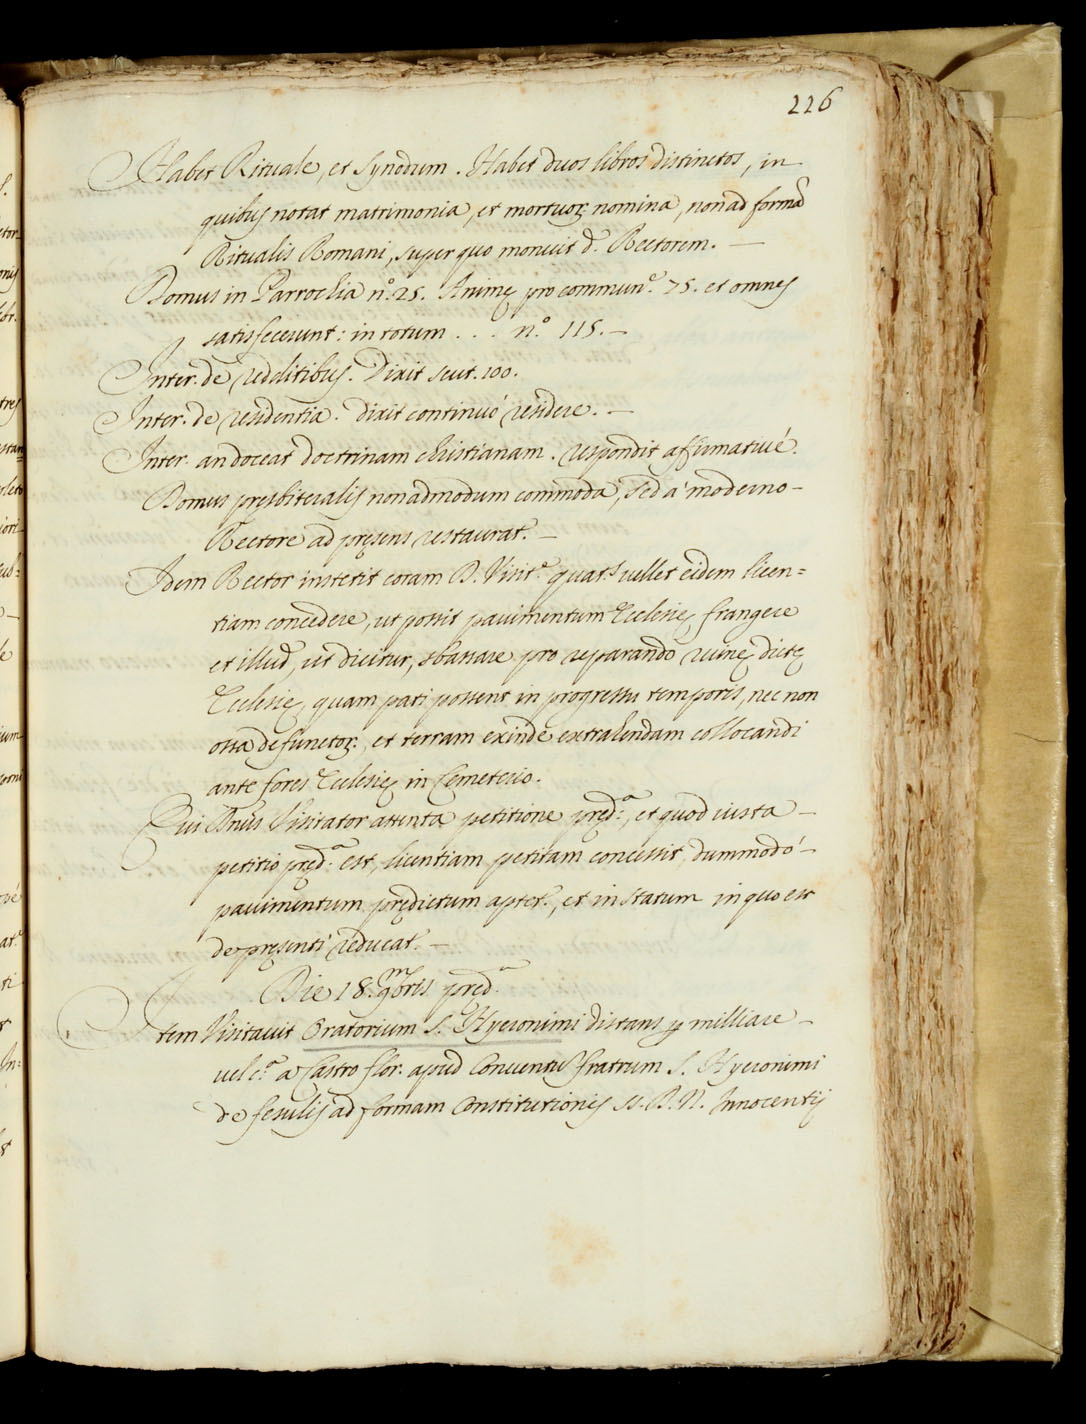 226
Habet Rituale, et Synodum. Habet duos libros distinctos, in
quibus notat matrimonia, et mortuorꝫ nomina, non ad formā
Ritualis Romani, super quo monuit d. Rectorem. —
Domus in Parrochia nº. 25. Animę pro commun.ᵉ 75. et omnes
satisfecerunt: in totum . . . nº. 115. —
Inter. de redditibus. Dixit scut. 100.
Inter. de residentia. dixit continuó residere. —
Inter. an doceat doctrinam christianam. respondit affirmativé.
Domus presbiteralis non admodum commoda, sed á moderno —
Rectore ad pręsens restaurat.ʳ —
Idem Rector institit coram D. Visit.ᵉ quat.ˢ vellet eidem licen=
tiam concedere, ut possit pavimentum Ecclesię frangere
et illud, ut dicitur, sbassare pro reparando ruinę dictę
Ecclesię, quam pati possent in progressu temporis, nec non
ossa defunctorꝫ. et terram exinde extrahendam collocandi
ante fores Ecclesię in Cemeterio.
Qui Dnus Visitator attenta petitione pręd.ᵃ, et quod iusta —
petitio pręd.ᵃ est, licentiam petitam concessit, dummodó —
pavimentum prędictum aptet.ʳ, et in statum in quo est
de pręsenti reducat.ʳ —
Die 18. 9mbris pręd.ᵃ
Item Visitavit Oratorium S. Hyeronimi distans ꝑ milliare —
vel c.ᵃ a Castro flor. apud Conventū fratrum S. Hyeronimi
de fesulis ad formam Constitutionis SS. D. N. Innocentij